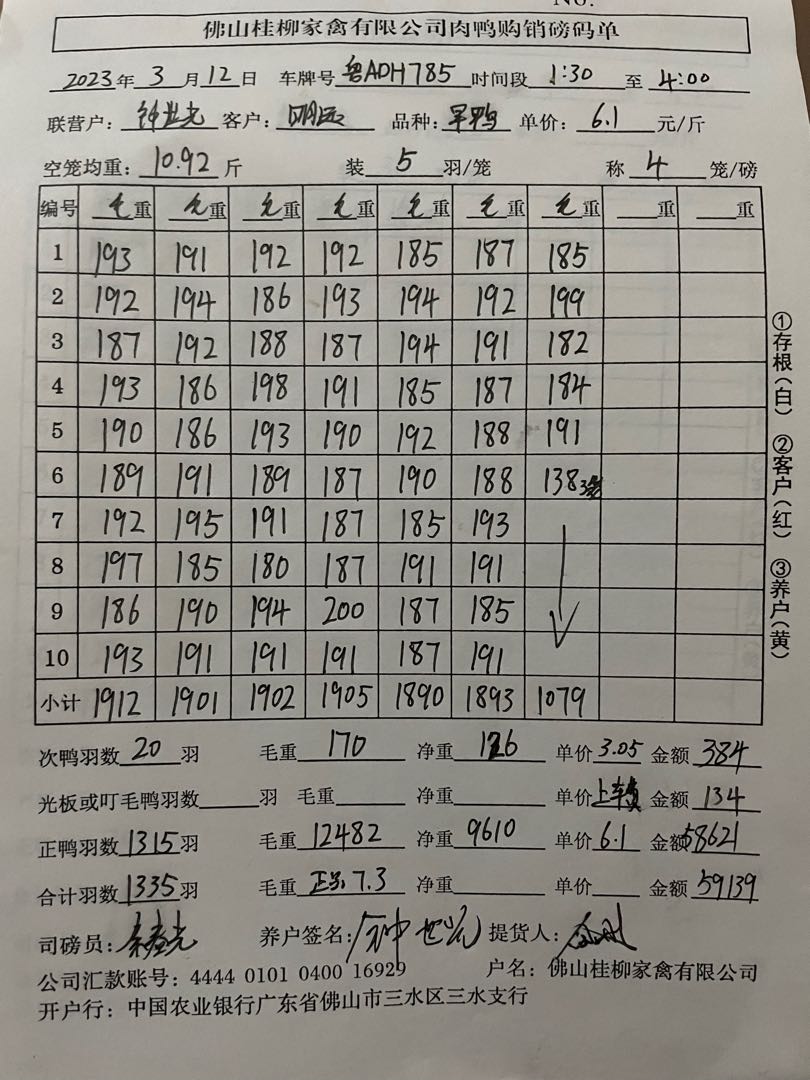 No.
佛山桂柳家禽有限公司肉鸭购销磅码单
2023年 3 月 12 日 车牌号 鲁ADH785 时间段 1:30 至 4:00
联营户： 客户：明远 品种：旱鸭 单价：6.1 元/斤
空笼均重：10.92 斤 装 5 羽/笼 称 4 笼/磅
编号 毛重 毛重 毛重 毛重 毛重 毛重 毛重 重 重
1 193 191 192 192 185 187 185
2 192 194 186 193 194 192 199
3 187 192 188 187 194 191 182
4 193 186 198 191 185 187 184
5 190 186 193 190 192 188 191
6 189 191 189 187 190 188 138
7 192 195 191 187 185 193
8 197 185 180 187 191 191
9 186 190 194 200 187 185
10 193 191 191 191 187 191
小计 1912 1901 1902 1905 1890 1893 1079
次鸭羽数 20 羽 毛重 170 净重 126 单价 3.05 金额 384
光板或叮毛鸭羽数 羽 毛重 净重 单价 金额 134
正鸭羽数 1315 羽 毛重 12482 净重 9610 单价 6.1 金额 58621
合计羽数 1335 羽 毛重 7.3 净重 单价 金额 59139
司磅员： 养户签名： 提货人：
公司汇款账号：4444 0101 0400 16929 户名：佛山桂柳家禽有限公司
开户行：中国农业银行广东省佛山市三水区三水支行
①存根(白) ②客户(红) ③养户(黄)